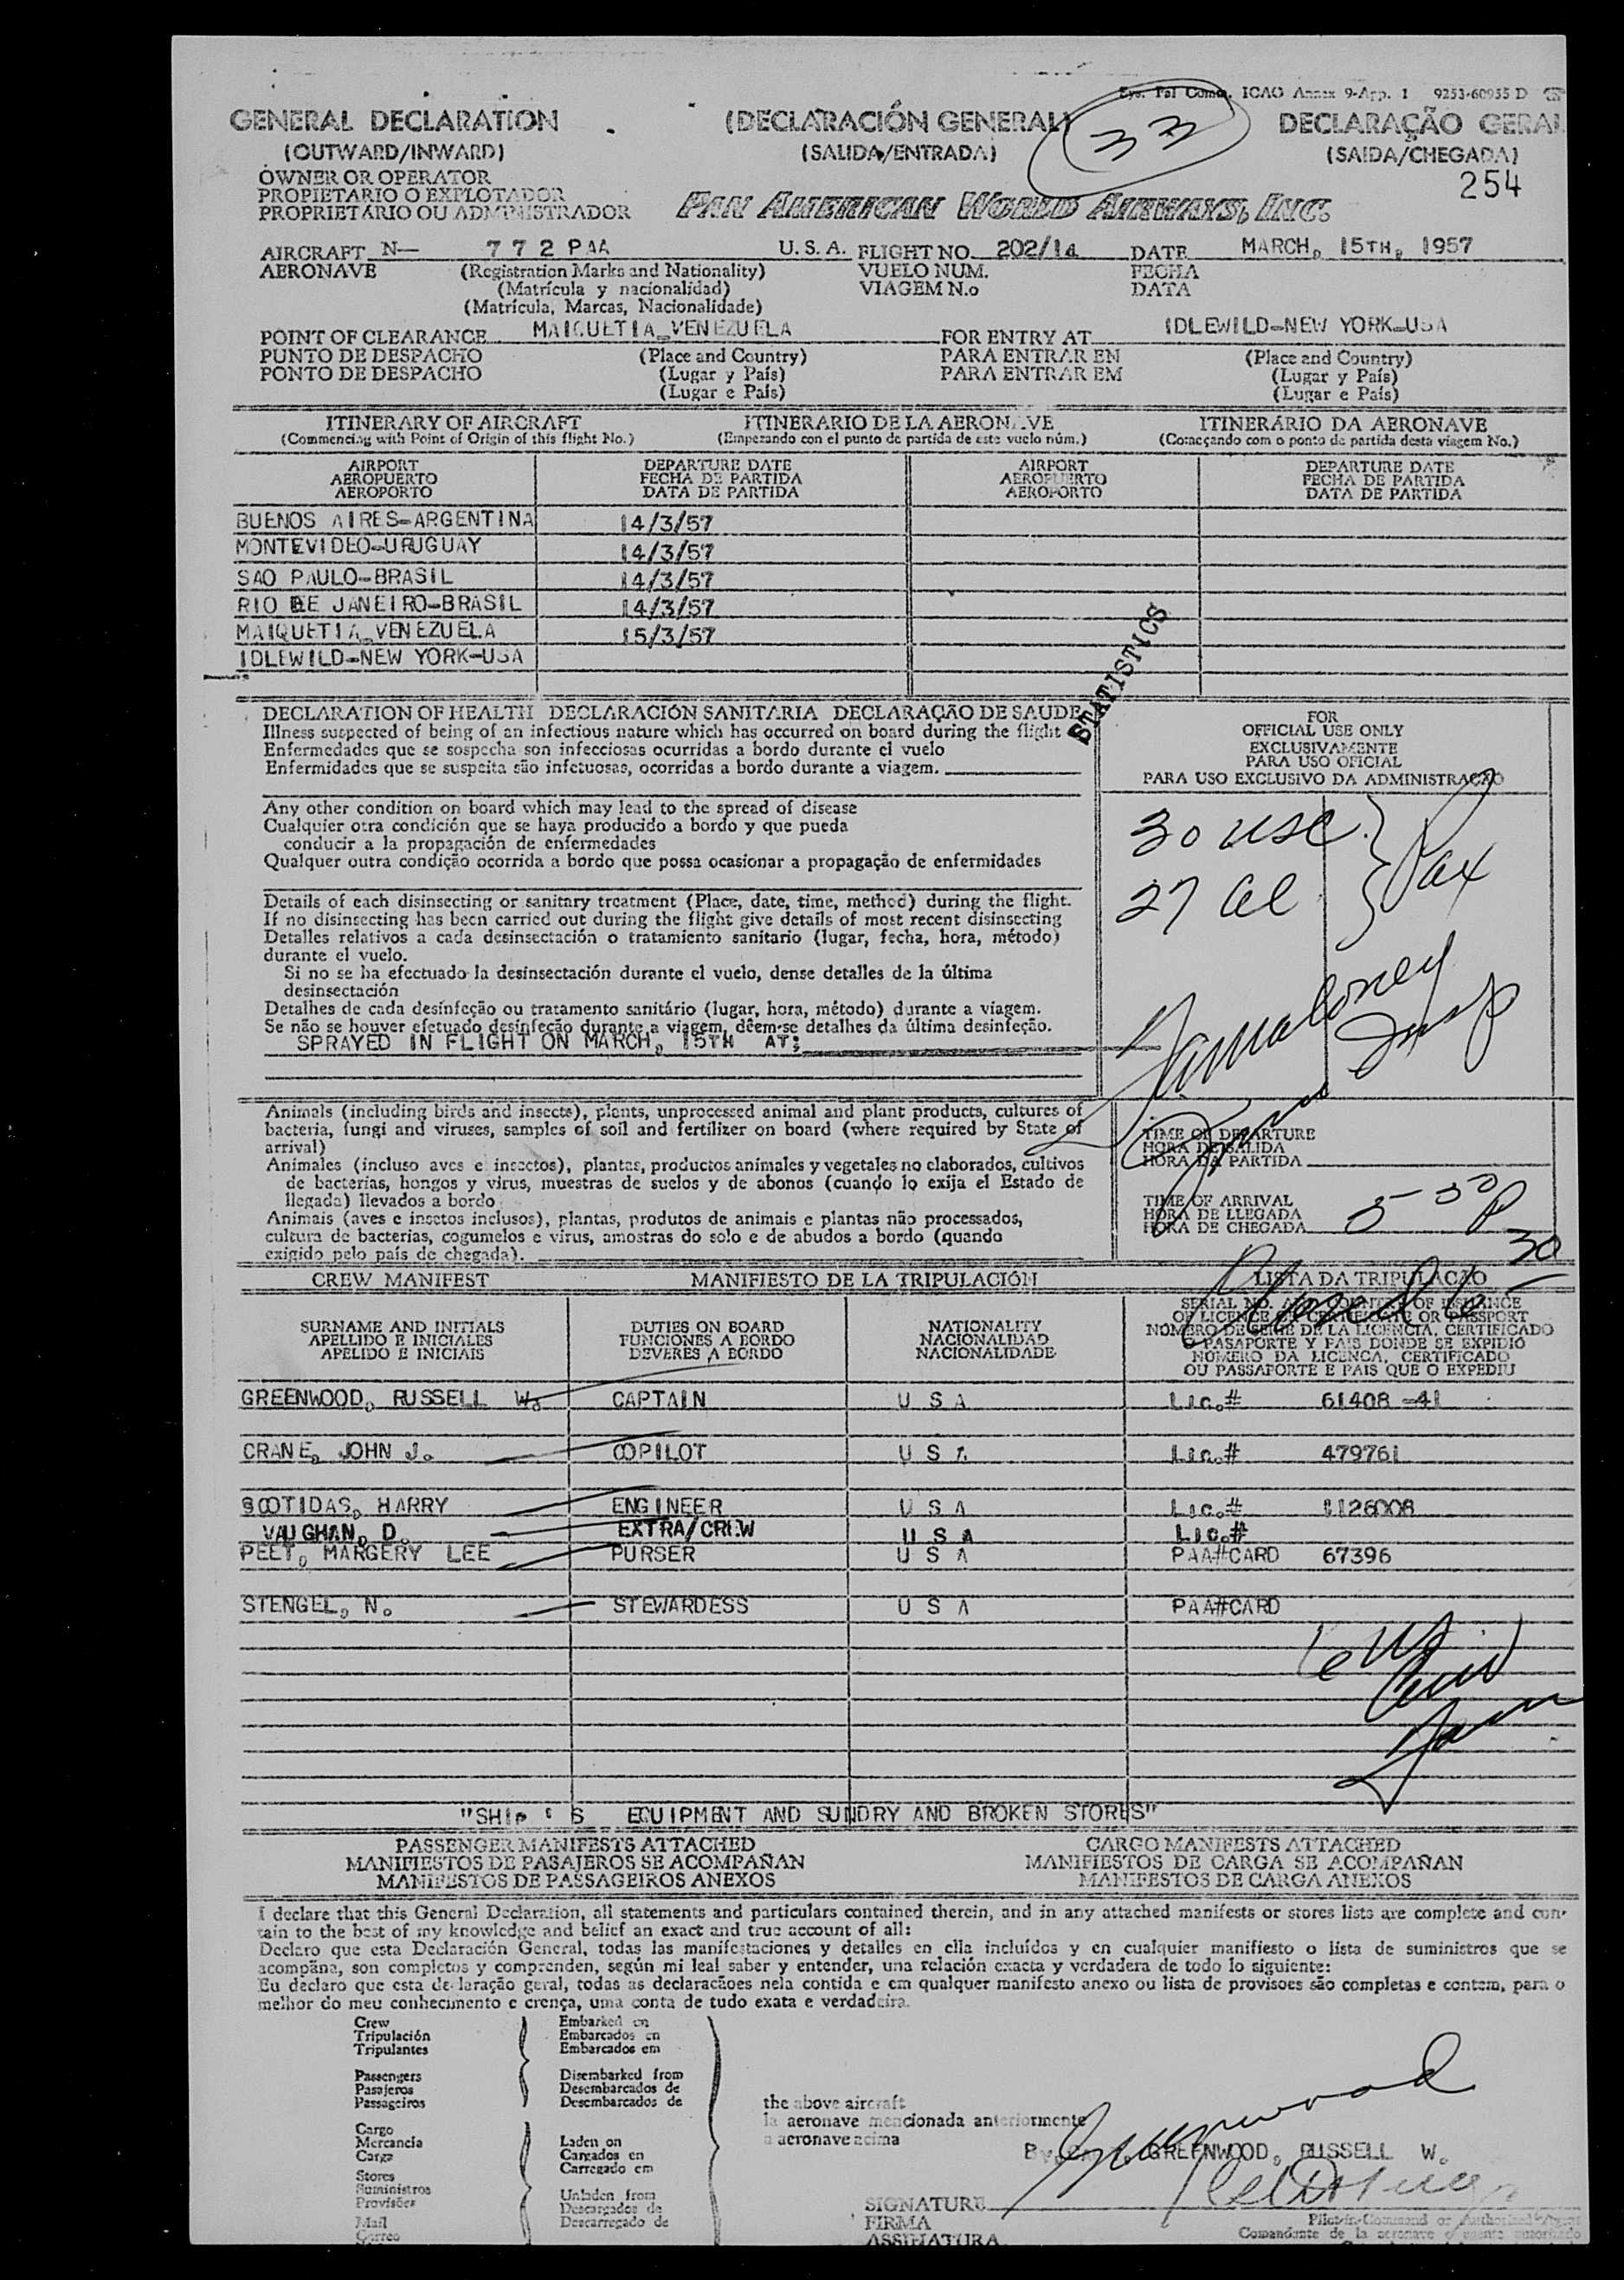 Sys. Pal Comm. ICAO Annex 9-App. 1 9253-60955 D
GENERAL DECLARATION (DECLARACIÓN GENERAL) DECLARAÇÃO GERAL
33
(OUTWARD/INWARD) (SALIDA/ENTRADA) (SAIDA/CHEGADA)
OWNER OR OPERATOR
PROPIETARIO O EXPLOTADOR
PROPRIETÁRIO OU ADMINISTRADOR PAN AMERICAN WORLD AIRWAYS, INC. 254
AIRCRAFT N— 772PAA U. S. A. FLIGHT NO. 202/14 DATE MARCH, 15TH, 1957
AERONAVE (Registration Marks and Nationality) VUELO NUM. FECHA
(Matrícula y nacionalidad) VIAGEM N.o DATA
(Matrícula, Marcas, Nacionalidade)
POINT OF CLEARANCE MAIQUETIA_VENEZUELA FOR ENTRY AT IDLEWILD-NEW YORK-USA
PUNTO DE DESPACHO (Place and Country) PARA ENTRAR EN (Place and Country)
PONTO DE DESPACHO (Lugar y País) PARA ENTRAR EM (Lugar y País)
(Lugar e País) (Lugar e País)
ITINERARY OF AIRCRAFT ITINERARIO DE LA AERONAVE ITINERÁRIO DA AERONAVE
(Commencing with Point of Origin of this flight No.) (Empezando con el punto de partida de este vuelo núm.) (Começando com o ponto de partida desta viagem No.)
AIRPORT DEPARTURE DATE AIRPORT DEPARTURE DATE
AEROPUERTO FECHA DE PARTIDA AEROPUERTO FECHA DE PARTIDA
AEROPORTO DATA DE PARTIDA AEROPORTO DATA DE PARTIDA
BUENOS AIRES-ARGENTINA 14/3/57
MONTEVIDEO-URUGUAY 14/3/57
SAO PAULO-BRASIL 14/3/57
RIO DE JANEIRO-BRASIL 14/3/57
MAIQUETIA_VENEZUELA 15/3/57
IDLEWILD-NEW YORK-USA
STATISTICS
DECLARATION OF HEALTH DECLARACIÓN SANITARIA DECLARAÇÃO DE SAUDE
Illness suspected of being of an infectious nature which has occurred on board during the flight
Enfermedades que se sospecha son infecciosas ocurridas a bordo durante el vuelo
Enfermidades que se suspeita são infetuosas, ocorridas a bordo durante a viagem.
FOR
OFFICIAL USE ONLY
EXCLUSIVAMENTE
PARA USO OFICIAL
PARA USO EXCLUSIVO DA ADMINISTRAÇÃO
Any other condition on board which may lead to the spread of disease
Cualquier otra condición que se haya producido a bordo y que pueda
conducir a la propagación de enfermedades
Qualquer outra condição ocorrida a bordo que possa ocasionar a propagação de enfermidades
30 USC
27 al
Pax
Details of each disinsecting or sanitary treatment (Place, date, time, method) during the flight.
If no disinsecting has been carried out during the flight give details of most recent disinsecting
Detalles relativos a cada desinsectación o tratamiento sanitario (lugar, fecha, hora, método)
durante el vuelo.
Si no se ha efectuado la desinsectación durante el vuelo, dense detalles de la última
desinsectación
Detalhes de cada desinfeção ou tratamento sanitário (lugar, hora, método) durante a viagem.
Se não se houver efetuado desinfeção durante a viagem, dêem-se detalhes da última desinfeção.
SPRAYED IN FLIGHT ON MARCH, 15TH AT:
Insp
Animals (including birds and insects), plants, unprocessed animal and plant products, cultures of
bacteria, fungi and viruses, samples of soil and fertilizer on board (where required by State of
arrival)
Animales (incluso aves e insectos), plantas, productos animales y vegetales no elaborados, cultivos
de bacterias, hongos y virus, muestras de suelos y de abonos (cuando lo exija el Estado de
llegada) llevados a bordo
Animais (aves e insetos inclusos), plantas, produtos de animais e plantas não processados,
cultura de bacterias, cogumelos e virus, amostras do solo e de abudos a bordo (quando
exigido pelo país de chegada).
TIME OF DEPARTURE
HORA DE SALIDA
HORA DA PARTIDA
TIME OF ARRIVAL
HORA DE LLEGADA
HORA DE CHEGADA 5-50P
30
CREW MANIFEST MANIFIESTO DE LA TRIPULACIÓN LISTA DA TRIPULACÃO
SURNAME AND INITIALS DUTIES ON BOARD NATIONALITY
APELLIDO E INICIALES FUNCIONES A BORDO NACIONALIDAD
APELIDO E INICIAIS DEVERES A BORDO NACIONALIDADE
SERIAL NO. AND COUNTRY OF ISSUANCE
OF LICENCE OR CERTIFICATE OR PASSPORT
NÚMERO DE SERIE DE LA LICENCIA, CERTIFICADO
O PASAPORTE Y PAIS DONDE SE EXPIDIÓ
NÚMERO DA LICENCA, CERTIFICADO
OU PASSAPORTE E PAIS QUE O EXPEDIU
GREENWOOD, RUSSELL W. CAPTAIN U S A Lic.# 61408-41
CRANE, JOHN J. COPILOT U S A Lic.# 479761
SCOTIDAS, HARRY ENGINEER U S A Lic.# 1126008
VAUGHAN, D. EXTRA/CREW U S A Lic.#
PEET, MARGERY LEE PURSER U S A PAA#CARD 67396
STENGEL, N. STEWARDESS U S A PAA#CARD
"SHIP'S EQUIPMENT AND SUNDRY AND BROKEN STORES"
PASSENGER MANIFESTS ATTACHED CARGO MANIFESTS ATTACHED
MANIFIESTOS DE PASAJEROS SE ACOMPAÑAN MANIFIESTOS DE CARGA SE ACOMPAÑAN
MANIFESTOS DE PASSAGEIROS ANEXOS MANIFESTOS DE CARGA ANEXOS
I declare that this General Declaration, all statements and particulars contained therein, and in any attached manifests or stores lists are complete and con-
tain to the best of my knowledge and belief an exact and true account of all:
Declaro que esta Declaración General, todas las manifestaciones y detalles en ella incluídos y en cualquier manifiesto o lista de suministros que se
acompãna, son completos y comprenden, según mi leal saber y entender, una relación exacta y verdadera de todo lo siguiente:
Eu declaro que esta declaração geral, todas as declaracãoes nela contida e em qualquer manifesto anexo ou lista de provisoes são completas e contem, para o
melhor do meu conhecimento e crença, uma conta de tudo exata e verdadeira.
Crew Embarked on
Tripulación Embarcados en
Tripulantes Embarcados em
Passengers Disembarked from
Pasajeros Desembarcados de
Passageiros Desembarcados de
the above aircraft
la aeronave mencionada anteriormente
a aeronave acima
Cargo
Mercancía Laden on
Carga Cargados en
Carregado em
Stores
Suministros Unladen from
Provisões Descargados de
Mail Descarregado de
Correo
Greenwood
GREENWOOD, RUSSELL W.
SIGNATURE
FIRMA
ASSINATURA
Pilot-in-Command or Authorized Agent
Comandante de la aeronave o agente autorizado